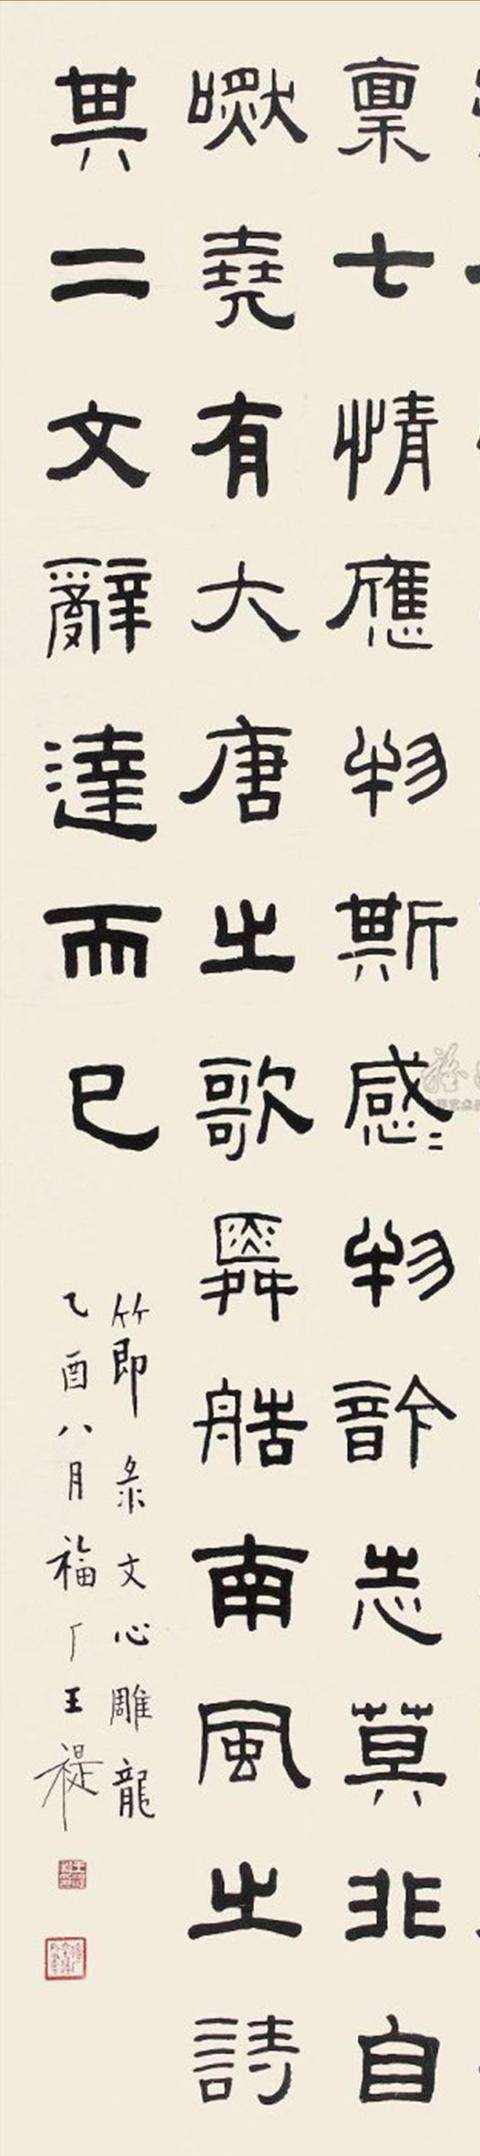 稟七情應物斯感〻物訡志莫非自
嘫堯有大唐之歌舜造南風之詩
其二文辭達而已
節錄文心雕龍
乙酉八月福厂王禔